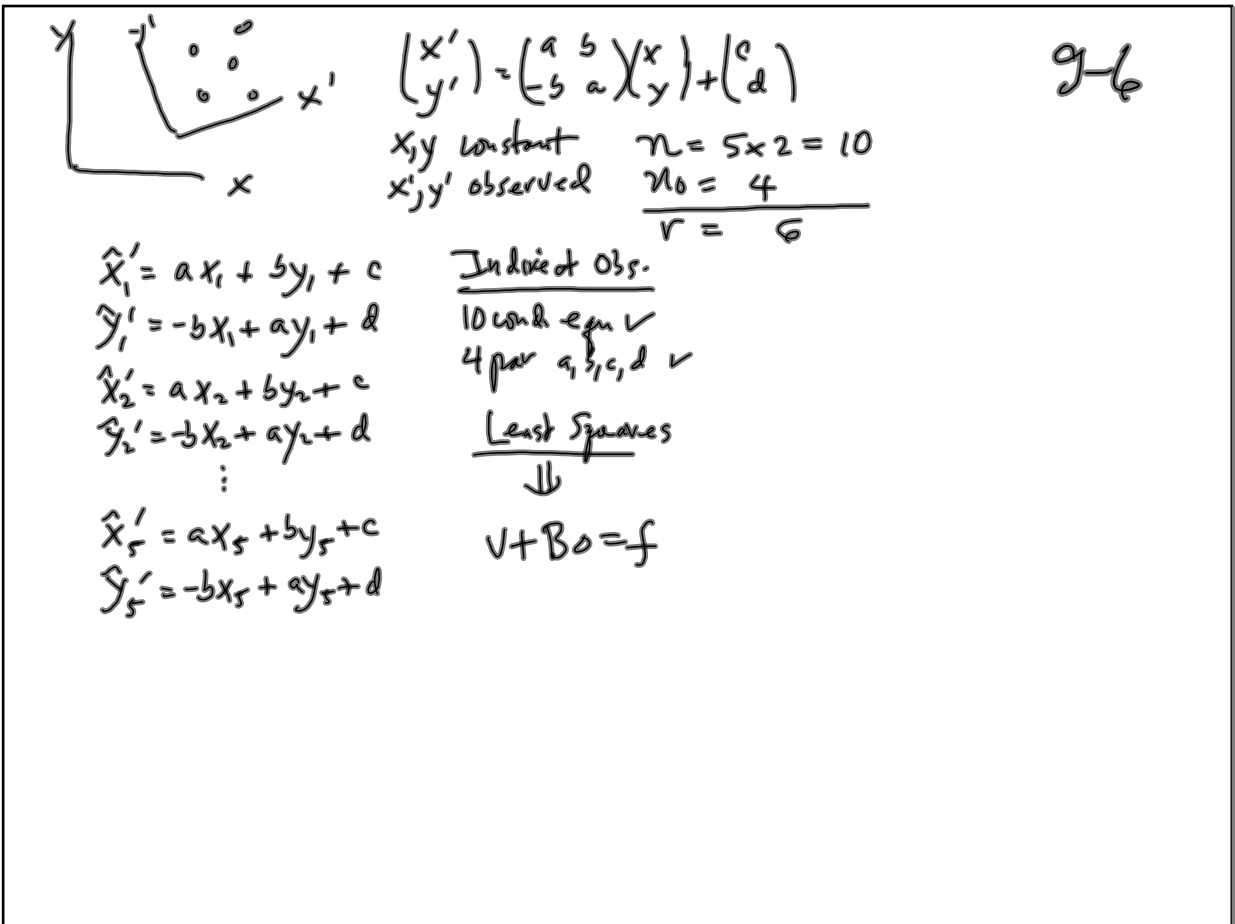 9-6
y y' x' x
(x' y') = (a b -b a)(x y) + (c d)
x,y constant n = 5 x 2 = 10
x',y' observed n₀ = 4
r = 6
x̂₁' = ax₁ + by₁ + c
ŷ₁' = -bx₁ + ay₁ + d
x̂₂' = ax₂ + by₂ + c
ŷ₂' = -bx₂ + ay₂ + d
⋮
x̂₅' = ax₅ + by₅ + c
ŷ₅' = -bx₅ + ay₅ + d
Indirect Obs.
10 cond. equ ✓
4 par a,b,c,d ✓
Least Squares
⇓
v + B∆ = f